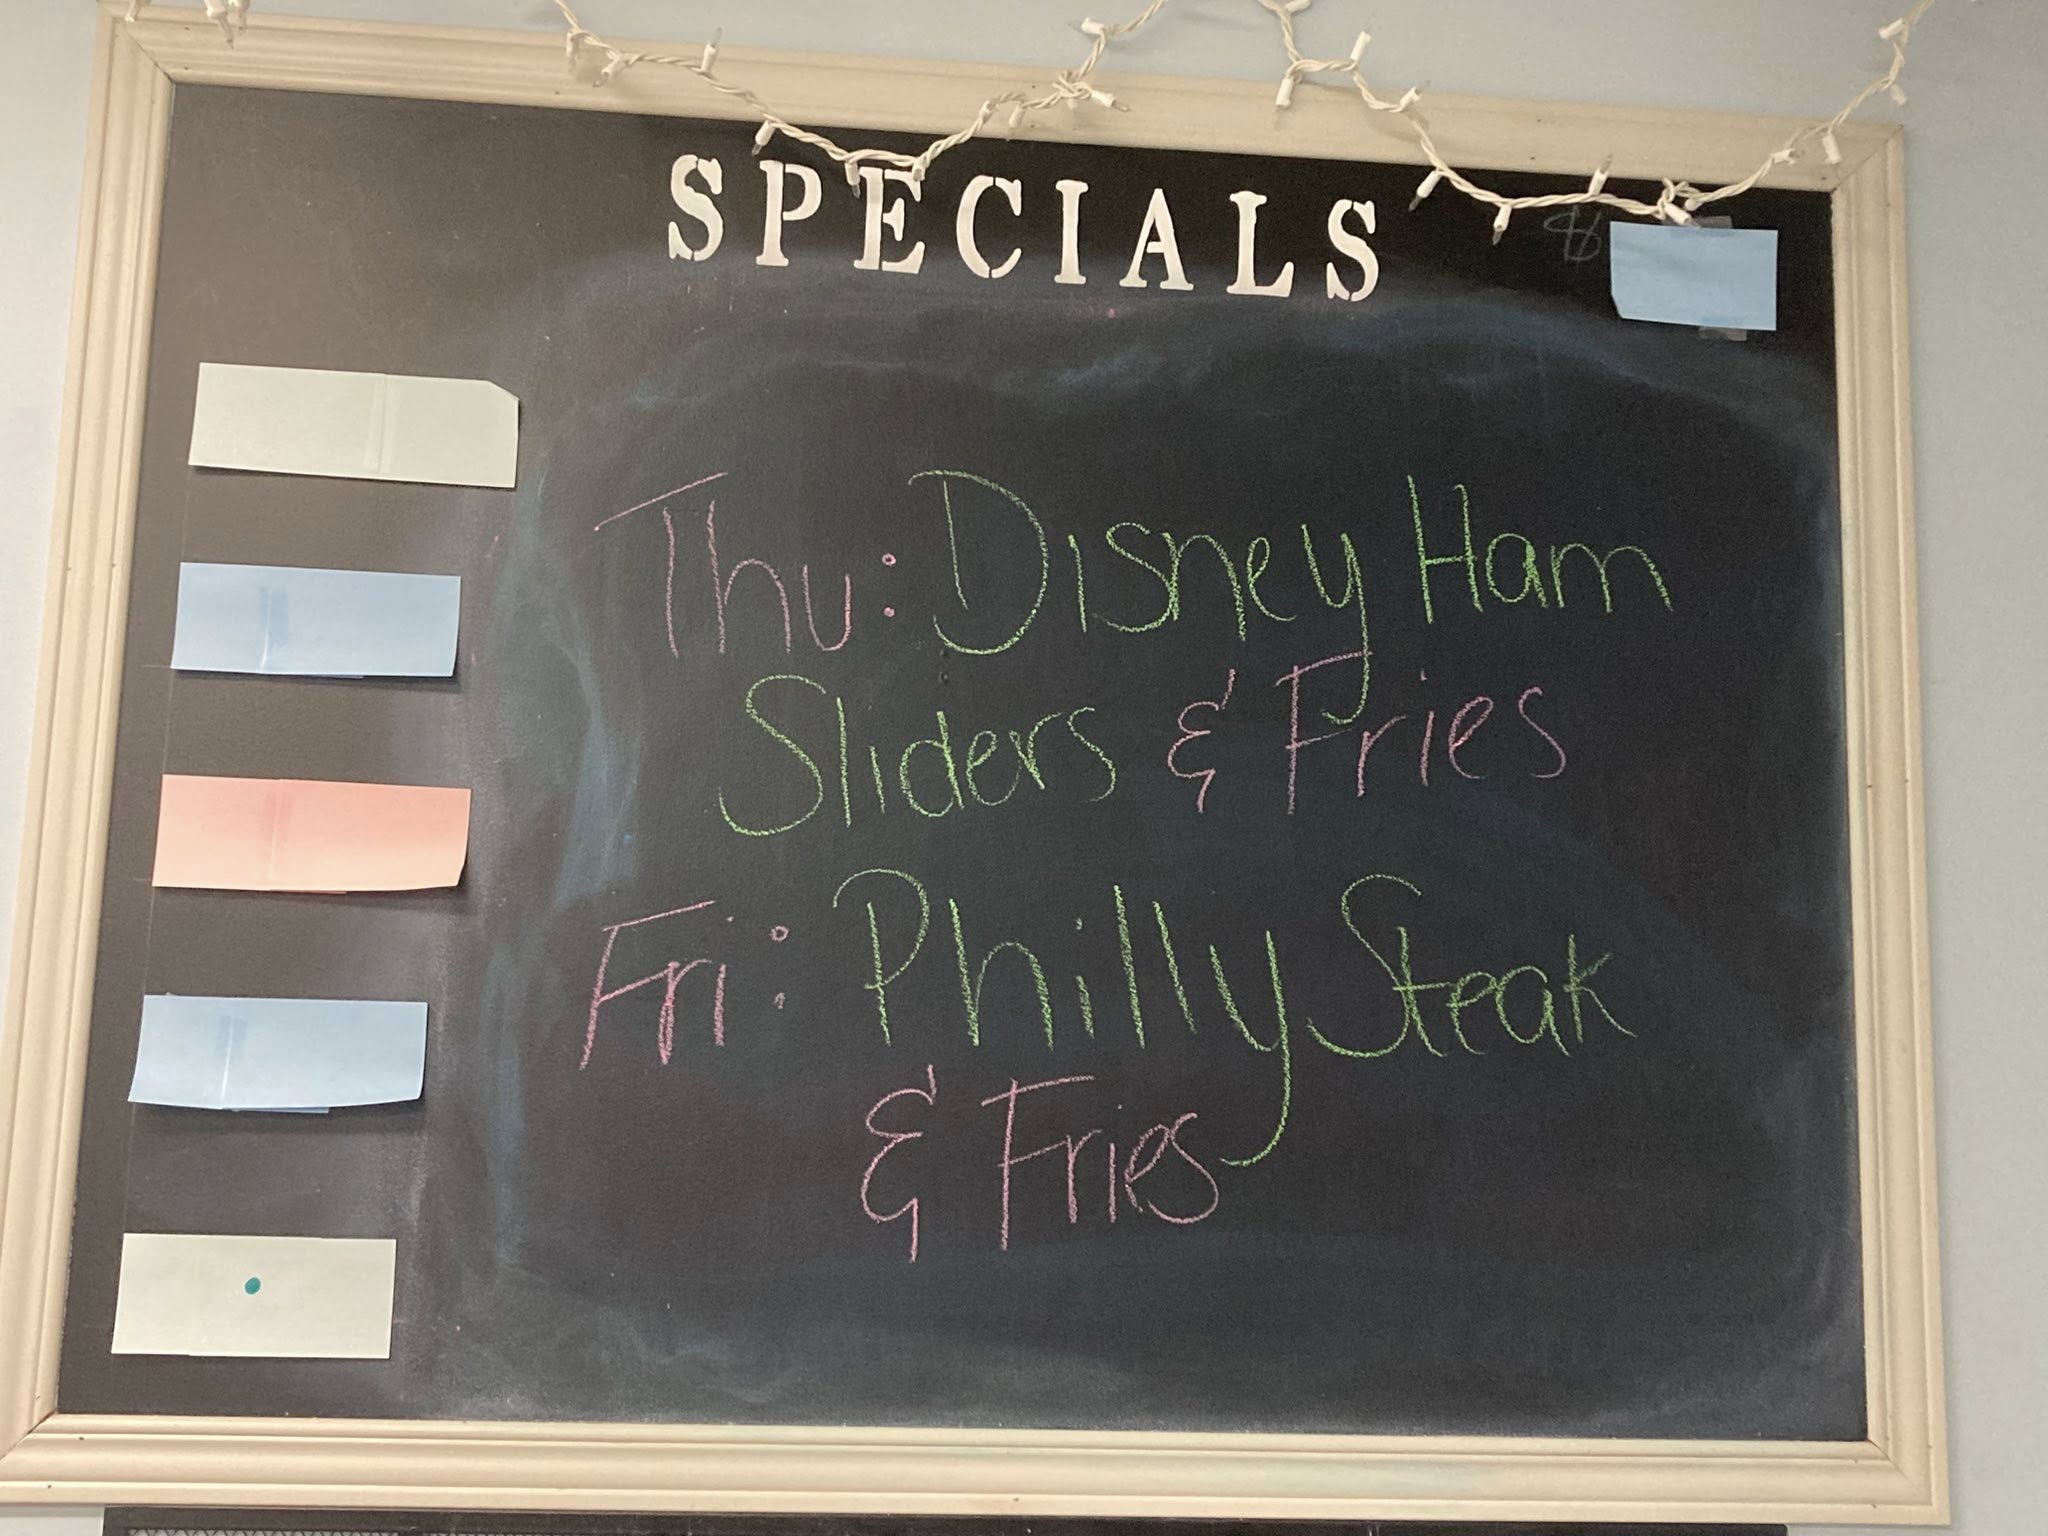 SPECIALS
$
Thu: Disney Ham
Sliders & Fries
Fri: Philly Steak
& Fries